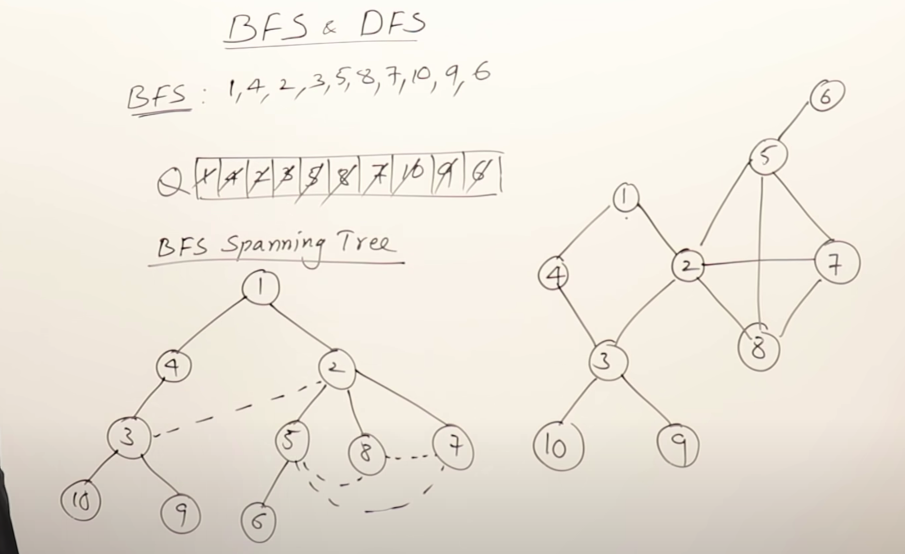 BFS & DFS
BFS : 1, 4, 2, 3, 5, 8, 7, 10, 9, 6
Q 1 4 2 3 5 8 7 10 9 6
BFS Spanning Tree
1
4 2
3 5 8 7
10 9 6
6
5
1
4 2 7
3 8
10 9